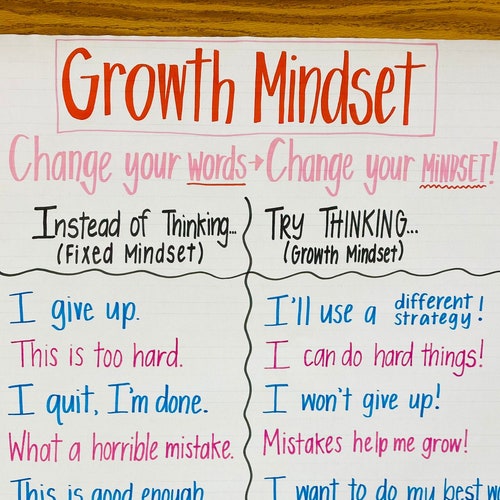 Growth Mindset
Change your words → Change your MINDSET!
Instead of Thinking...
(Fixed Mindset)
TRY THINKING...
(Growth Mindset)
I give up.
I'll use a different strategy!
This is too hard.
I can do hard things!
I quit, I'm done.
I won't give up!
What a horrible mistake.
Mistakes help me grow!
This is good enough
I want to do my best